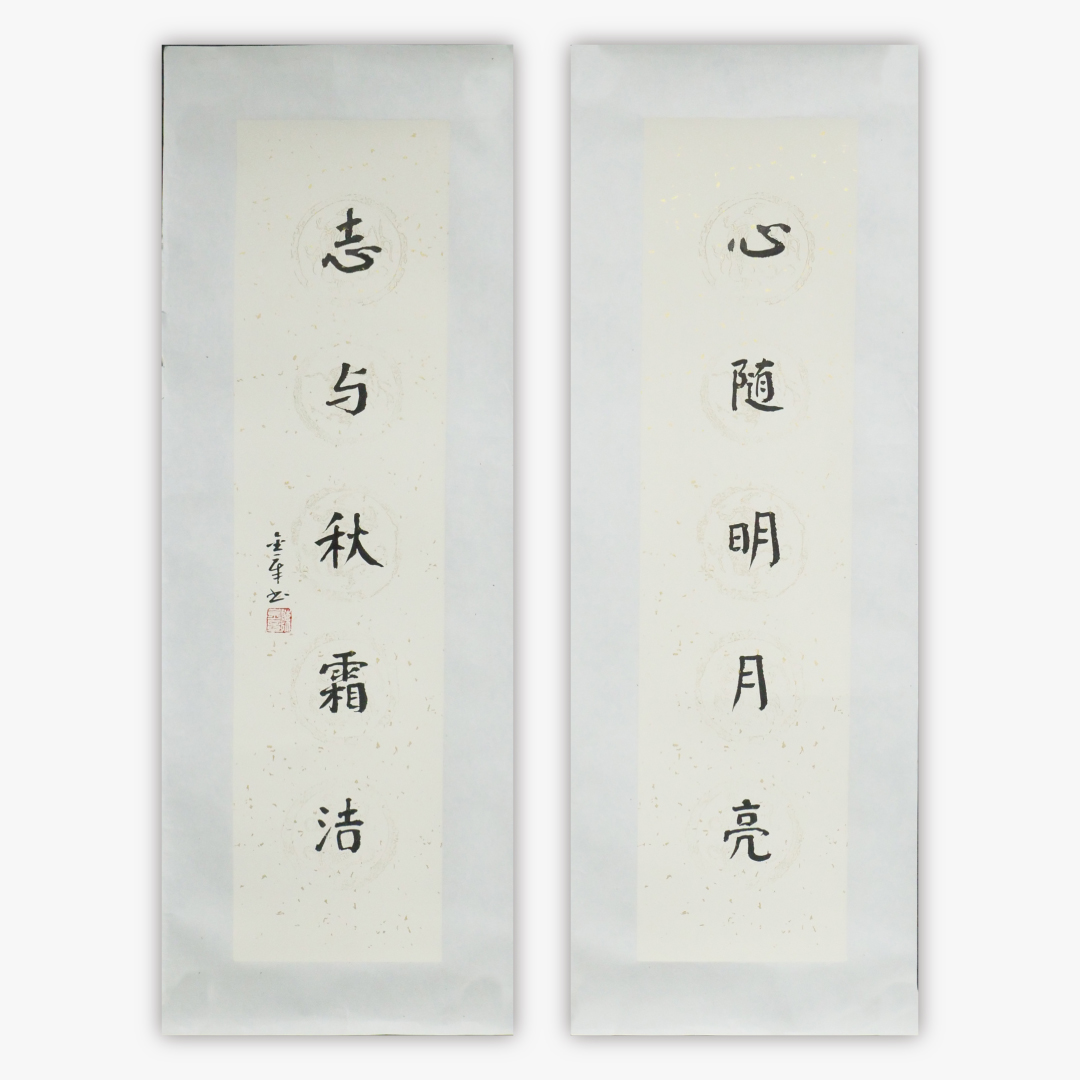 心随明月亮
志与秋霜洁